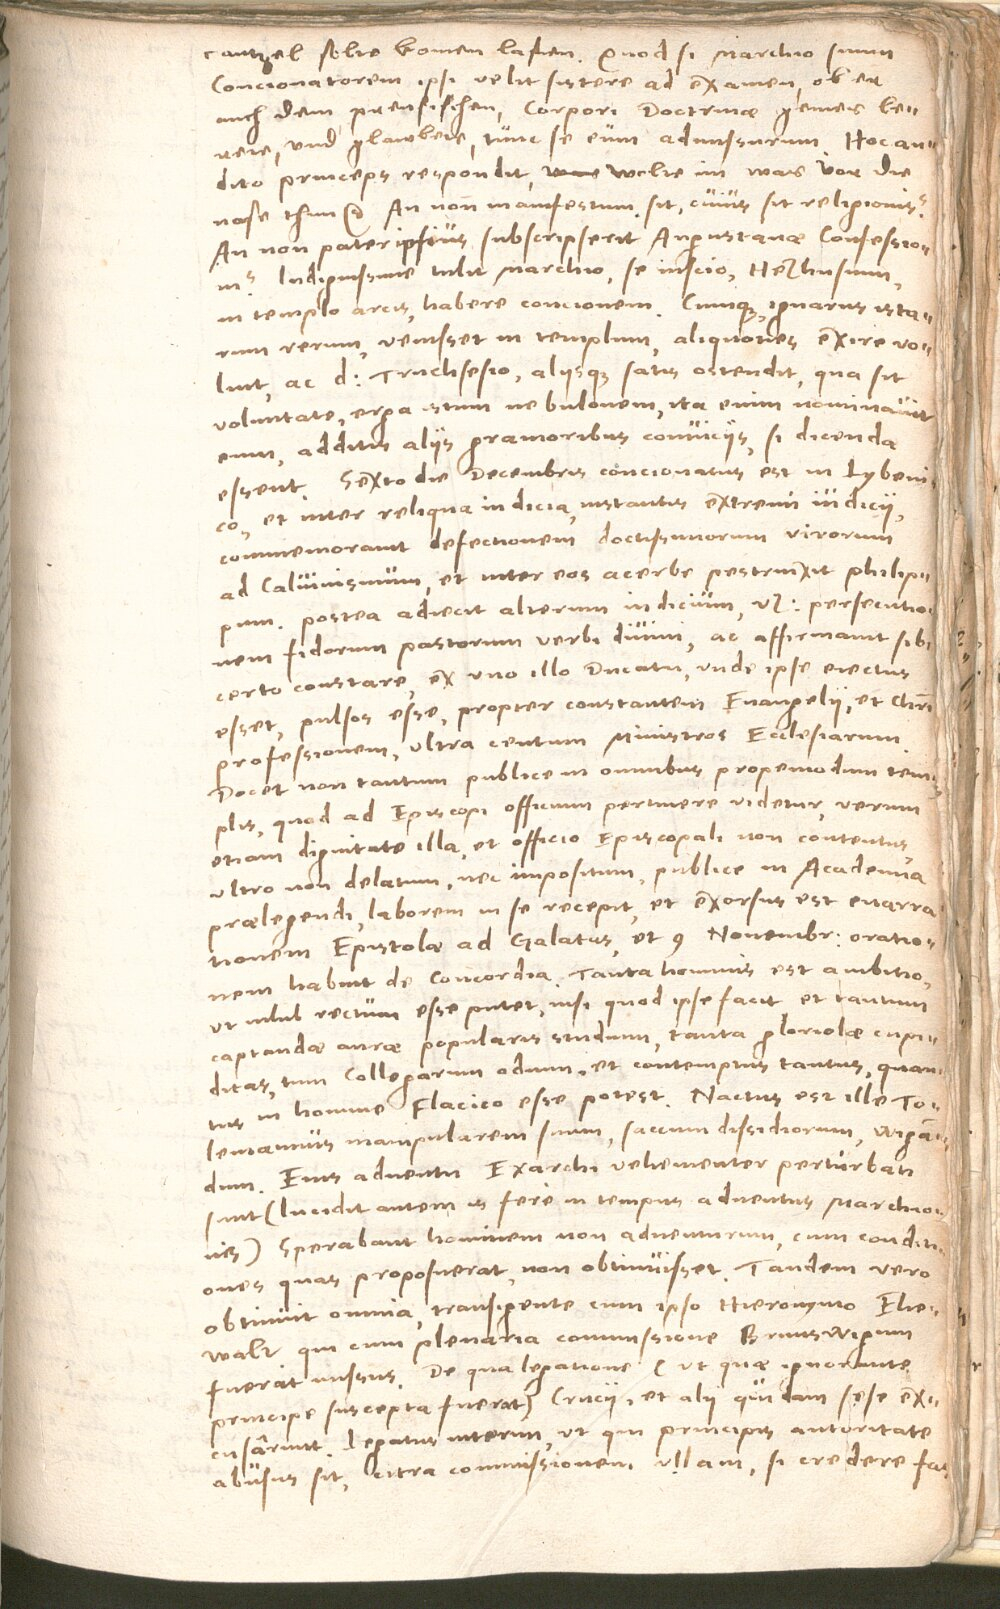 cantzel solte komen lassen. Quod si Marchio suum
Concionatorem ipsi velit sistere ad examen, ob er
auch dem preusischen, Corpori Doctrinæ gemeis le„
rete, und glawbete, tunc se eum admissurum. Hoc au„
dito princeps respondit, wolte im was vor die
nase thun An non manifestum sit, cuius sit religionis?
An non pater ipsius subscripserit Augustanæ Confessio„
ni? Indignissime tulit Marchio, se inscio, Heshusium,
in templo arcis, habere concionem. Cumq, ignarus ista„
rum rerum, venisset in templum, aliquoties exire vo„
luit, ac d: Truchsesio, aliisq satis ostendit, qua sit
voluntate, erga istum nebulonem, ita enim nominavit
eum, additis aliis gravioribus conviciis, si dicenda
essent. Sexto die Decembris concionatus est in Lybeni„
co, et inter reliqua indicia, instantis extremi iudicii,
commemoravit defectionem doctissimorum virorum
ad Calvinismum, et inter eos acerbe pestrinxit Philip„
pum. postea adiecit alterum indicium, vz: persecutio„
nem fidorum pastorum verbi divini, ac affirmavit sibi
certo constare, ex uno illo Ducatu, unde ipse eiectus
esset, pulsos esse, propter constantem Euangelii, et Chri
professionem, ultra centum Ministros Ecclesiarum.
Docet non tantum publice in omnibus propemodum tem„
plis, quod ad Episcopi officium pertinere videtur, verum
etiam dignitate illa, et officio Episcopali non contentus,
ultro non delatum, nec impositum, publice in Academia
prælegendi, laborem in se recepit, et exorsus est enarra
tionem Epistolæ ad Galatas, et 9 Novembr: oratio„
nem habuit de Concordia. Tanta hominis est ambitio,
ut nihil rectum esse putet, nisi quod ipse facit et tantum
captandæ auræ popularis studium, tanta gloriolæ cupi„
ditas, tum Collegarum odium, et contemptus tantus, quan„
tus in homine Flacico esse potest. Nactus est ille To„
lemannus manipularem suum, saccum dissidiorum, Wigan„
dum. Eius adventu Exarchi vehementer perturbati
sunt (Incidit autem is fere in tempus adventus Marchio„
nis) Sperabant hominem non adventurum, cum conditi„
ones quas proposuerat, non obtinuisset. Tandem vero
obtinuit omnia, transigente cum ipso Hieronymo Elie„
walt qui cum plenaria commissione Brunswigum
fuerat missus. De qua legatione (ut quæ ignorante
principe suscepta fuerat) Crucii, et alii quidam sese ex„
cusarunt. Legatus interim, ut qui principis autoritate
abusus sit, citra commissionem ullam, si credere fas